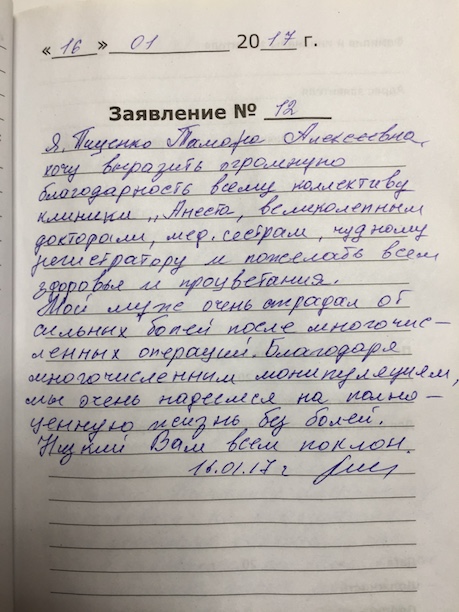 « 16 » 01 2017 г.
Заявление № 12
Я, Пиценко Тамара Алексеевна,
хочу выразить огромную
благодарность всему коллективу
клиники „Анеста, великолепным
докторам, мед. сестрам, чудному
регистратору и пожелать всем
здоровья и процветания.
Мой муж очень страдал от
сильных болей после многочис-
ленных операций. Благодаря
многочисленным манипуляциям,
мы очень надеемся на полно-
ценную жизнь без болей.
Низкий Вам всем поклон.
16.01.17 г